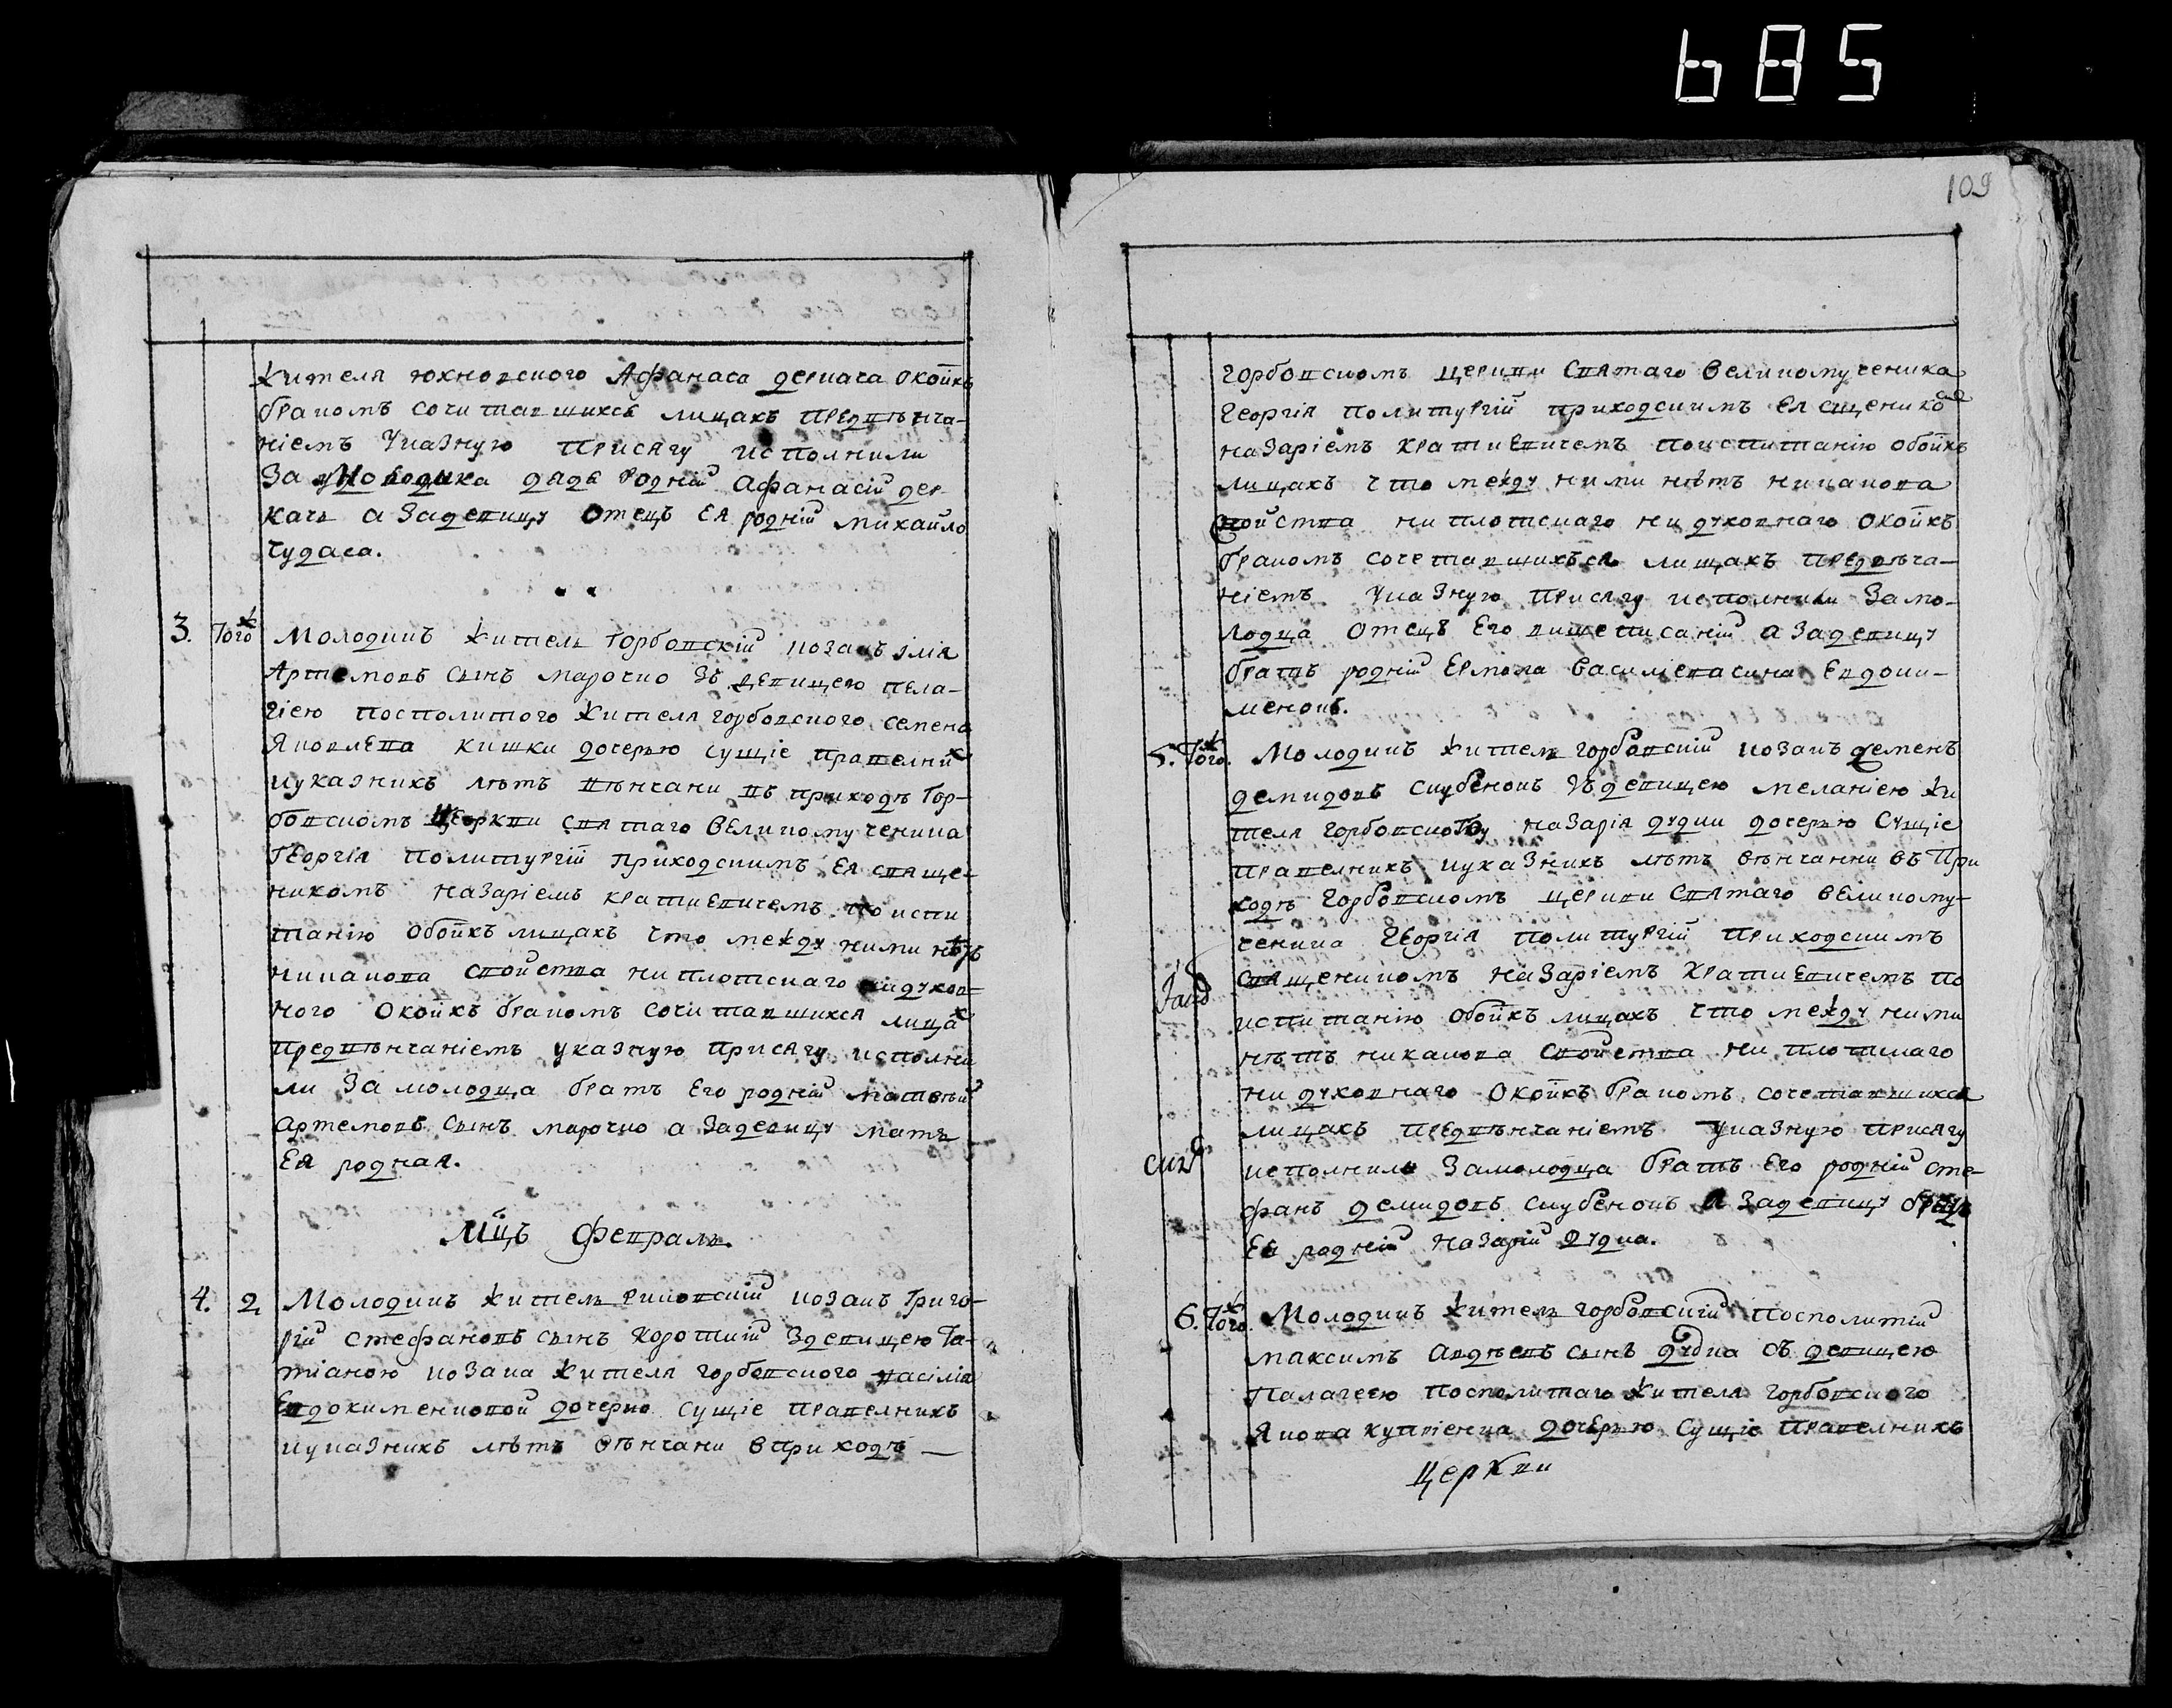 685
109
жителя юхновского Афанаса деркача окоихъ
бракомъ сочитавшихся лицахъ предвѣнча-
ніемъ указную присягу исполнили
За молодика дядя родній Афанасій дер-
качъ а Задевицу отецъ Ея родній михайло
Чудаса.
3. Тогож Молодикъ житель Горбовскій козакъ ілія
Артемовъ сынъ марочко Зъ девицею пела-
гіею посполитого жителя горбовского семена
Яковлева кишки дочерью сущіе правелних
иуказнихъ лѣтъ вѣнчани въ приходѣ Гор-
бовскомъ Церкви святаго Великомученика
Георгія политургій приходскимъ Ея священ-
никомъ назаріемъ кратиевичемъ по испи
танію обоихъ лицахъ что между ними нѣтъ
никакова свойства ни плотскаго нидухов-
ного окоихъ бракомъ сочитавшихся лицах
предвѣнчаніемъ указную присягу исполни
ли За молодца братъ Его родній матвѣй
Артемовъ сынъ марочко а Задевицу мать
Ея родная.
Мцъ февраль.
4. 2 Молодикъ житель риковскій козакъ Григо-
рій стефановъ сынъ короткій Здевицею Та-
тіаною козака жителя горбовского василія
Евдокименковой дочерью сущіе правелнихъ
иуказнихъ лѣтъ вѣнчани вприходѣ —
горбовскомъ церкви Святаго Великомученика
Георгія политургій приходскимъ Ея сщеникомъ
назаріемъ кратиевичемъ поиспитанію обоихъ
лицахъ что между ними нѣтъ никакова
свойства ни плотскаго ни духовнаго окоихъ
бракомъ сочетавшихъся лицахъ предвѣча-
ніемъ указную присягу исполнили Замо-
лодца отецъ Его вишеписаній а Задевицу
братъ родній Ермола василіевасина Евдоки-
менокъ.
5. Тогож. Молодикъ житель горбовскій козакъ семенъ
демидовъ скубенокъ Зъдевицею меланіею жи
теля горбовского назарія дудки дочерью Сущіе
правелнихъ иуказнихъ лѣтъ вѣнчанни въ При
ходѣ Горбовскомъ церкви Святаго Великому-
ченика Георгія политургій приходскимъ
священикомъ назаріемъ кратиевичемъ по
испитанію обоихъ лицахъ что между ними
нѣтъ никакова свойства ни плотскаго
ни духовнаго окоихъ бракомъ сочетавшихся
лицахъ предвѣнчаніемъ указную присягу
исполнили Замолодца братъ Его родній сте-
фанъ демидовъ скубенокъ а Задевицу отецъ
Ея родній назарій дудка.
6. Тогож. Молодикъ житель горбовскій посполитій
максимъ авдѣевъ сынъ дудка съ девицею
Палагеею посполитаго жителя горбовского
Якова купріенка дочерью Сущіе правелнихъ
церкви